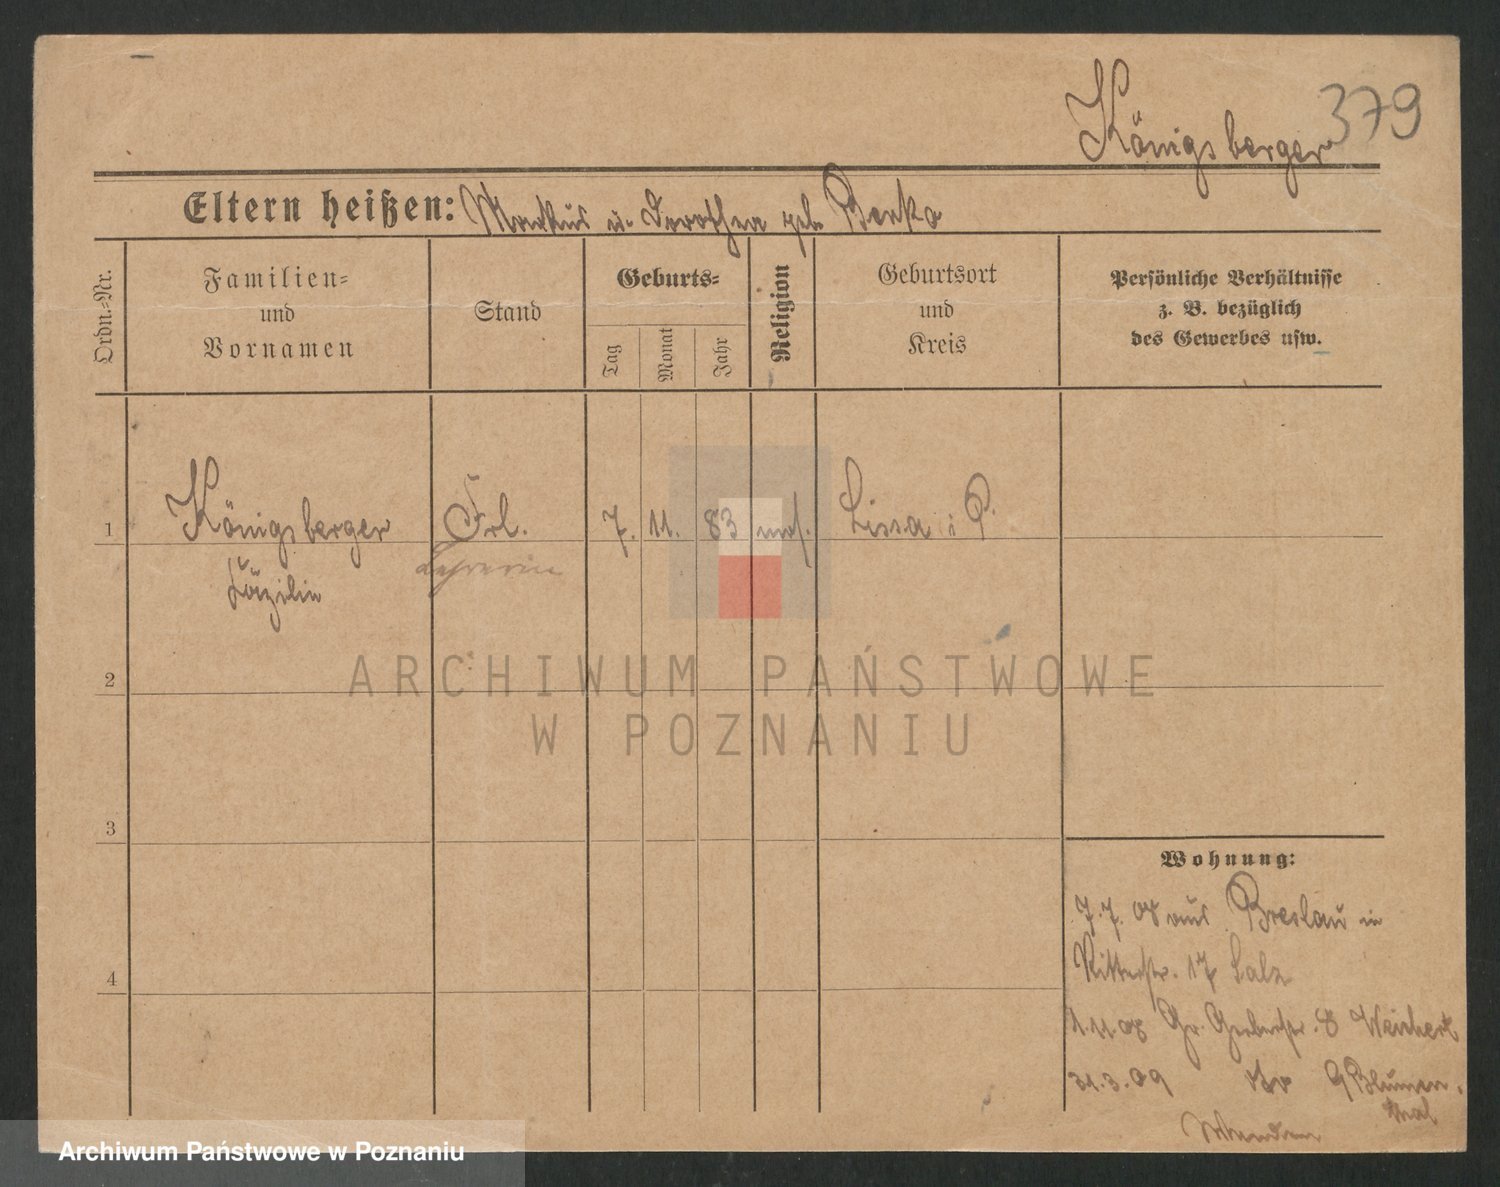 Königsberger
379
Eltern heißen: Markus u. Dorothea geb.
Ordn.-Nr.
Familien-
und
Vornamen
Stand
Geburts-
Tag
Monat
Jahr
Religion
Geburtsort
und
Kreis
Persönliche Verhältnisse
z. B. bezüglich
des Gewerbes usw.
1
Königsberger
Cäzilie
Frl.
Lehrerin
7.
11.
83
mos.
Lissa i P.
2
3
4
ARCHIWUM PAŃSTWOWE
W POZNANIU
Wohnung:
7.7. 08 aus Breslau in
Ritterstr. 17 Salz
1.11.08 Gr. Gerberstr. 8 Weichert
31.3.09 Blumen-
thal
Archiwum Państwowe w Poznaniu